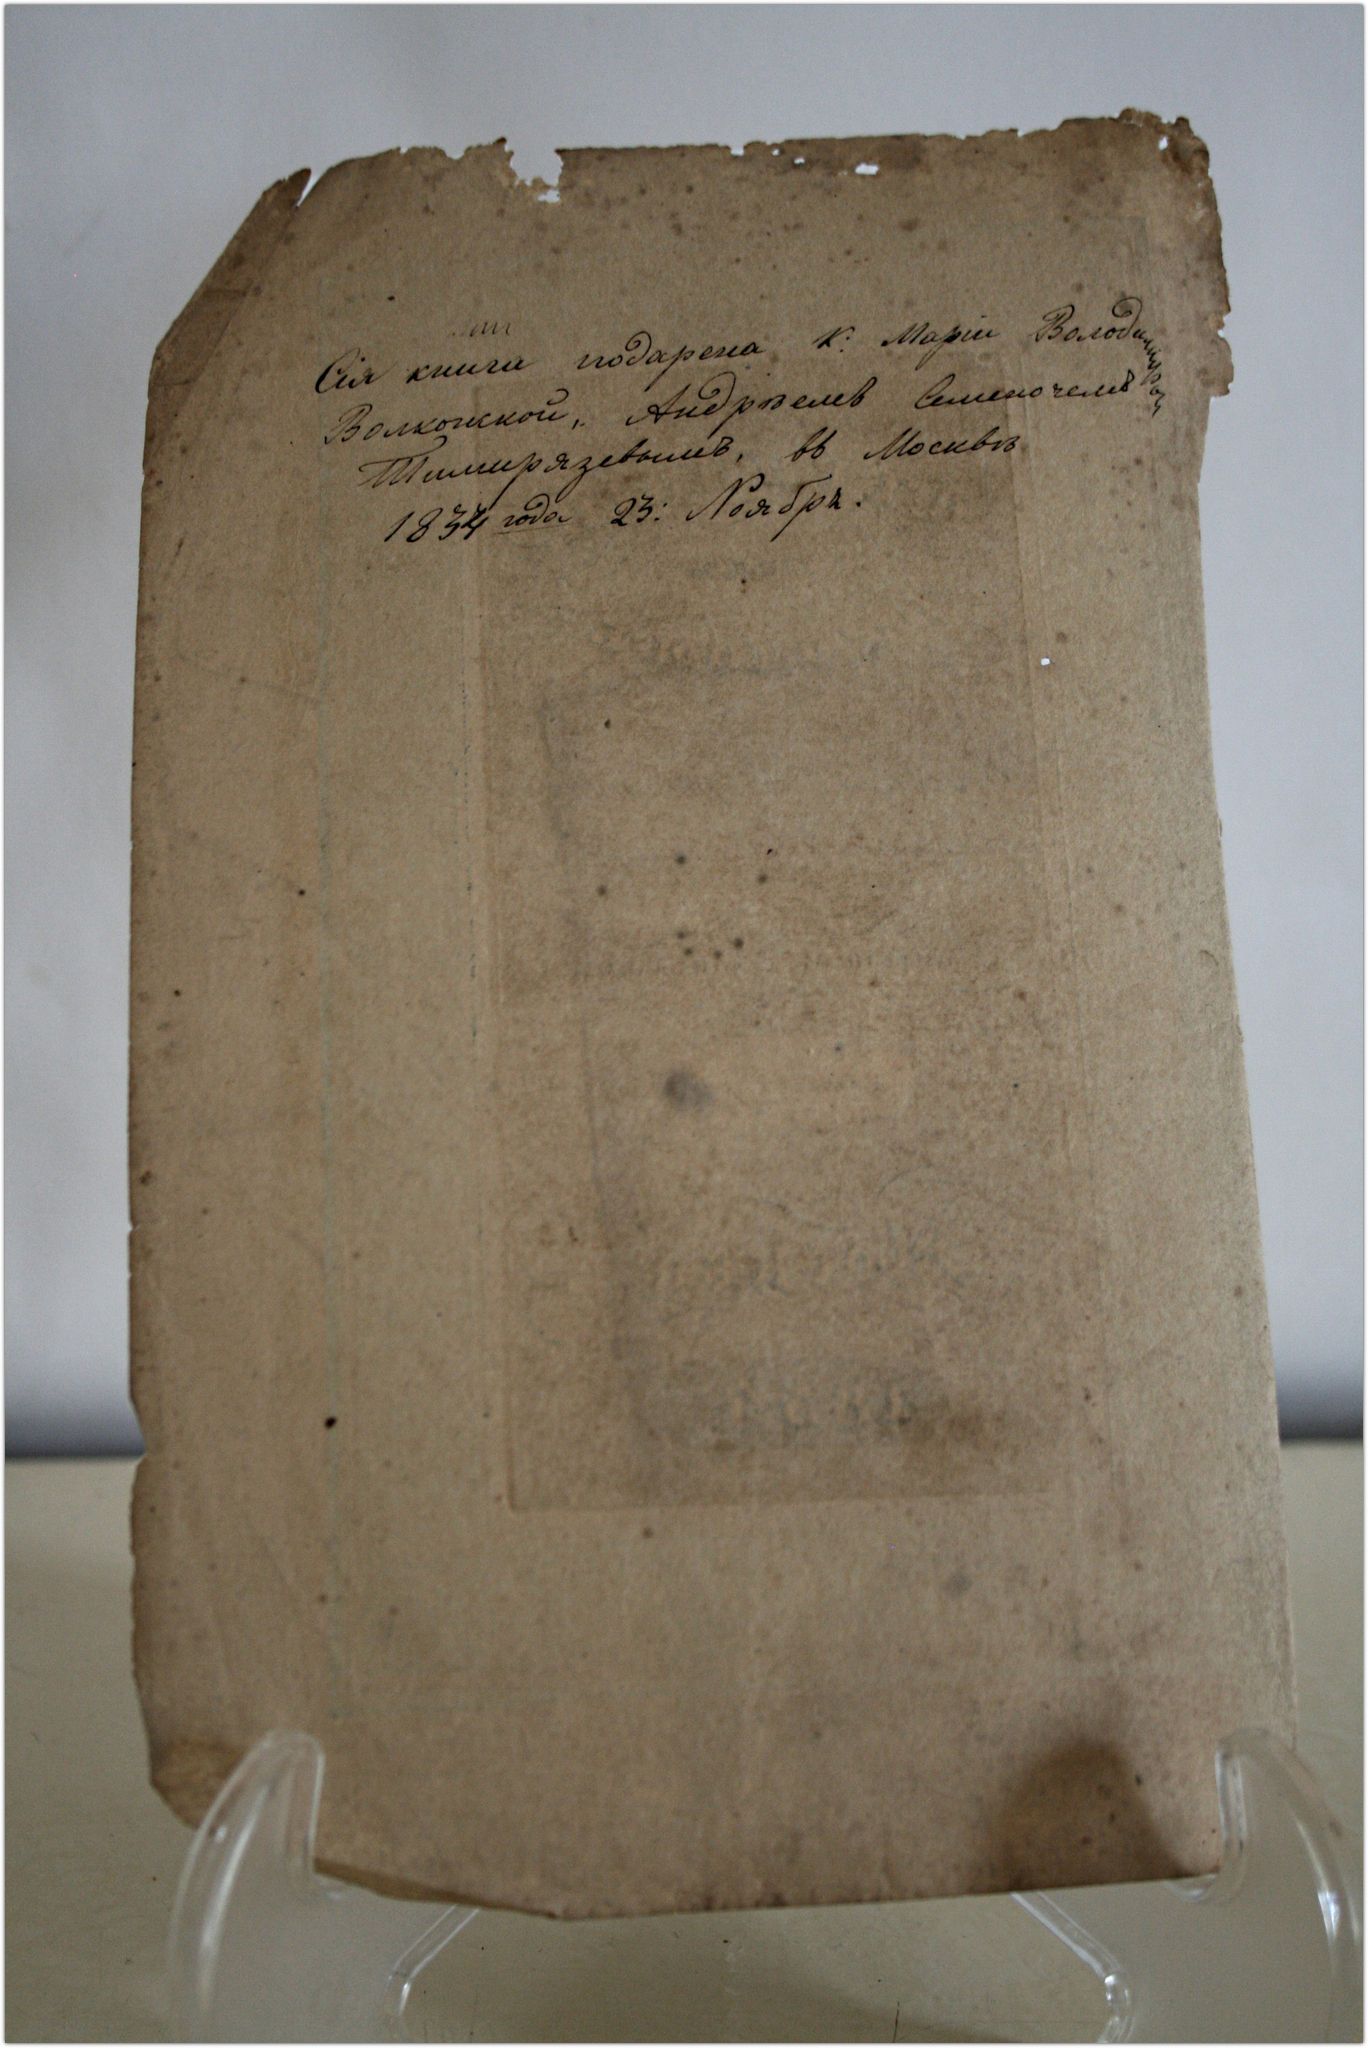 Сія книга подарена К: Маріи Володиміровнѣ
Волконской, Андрѣемъ Семеновичемъ
Тимирязевымъ, въ Москвѣ
1834 года 23: Ноября.